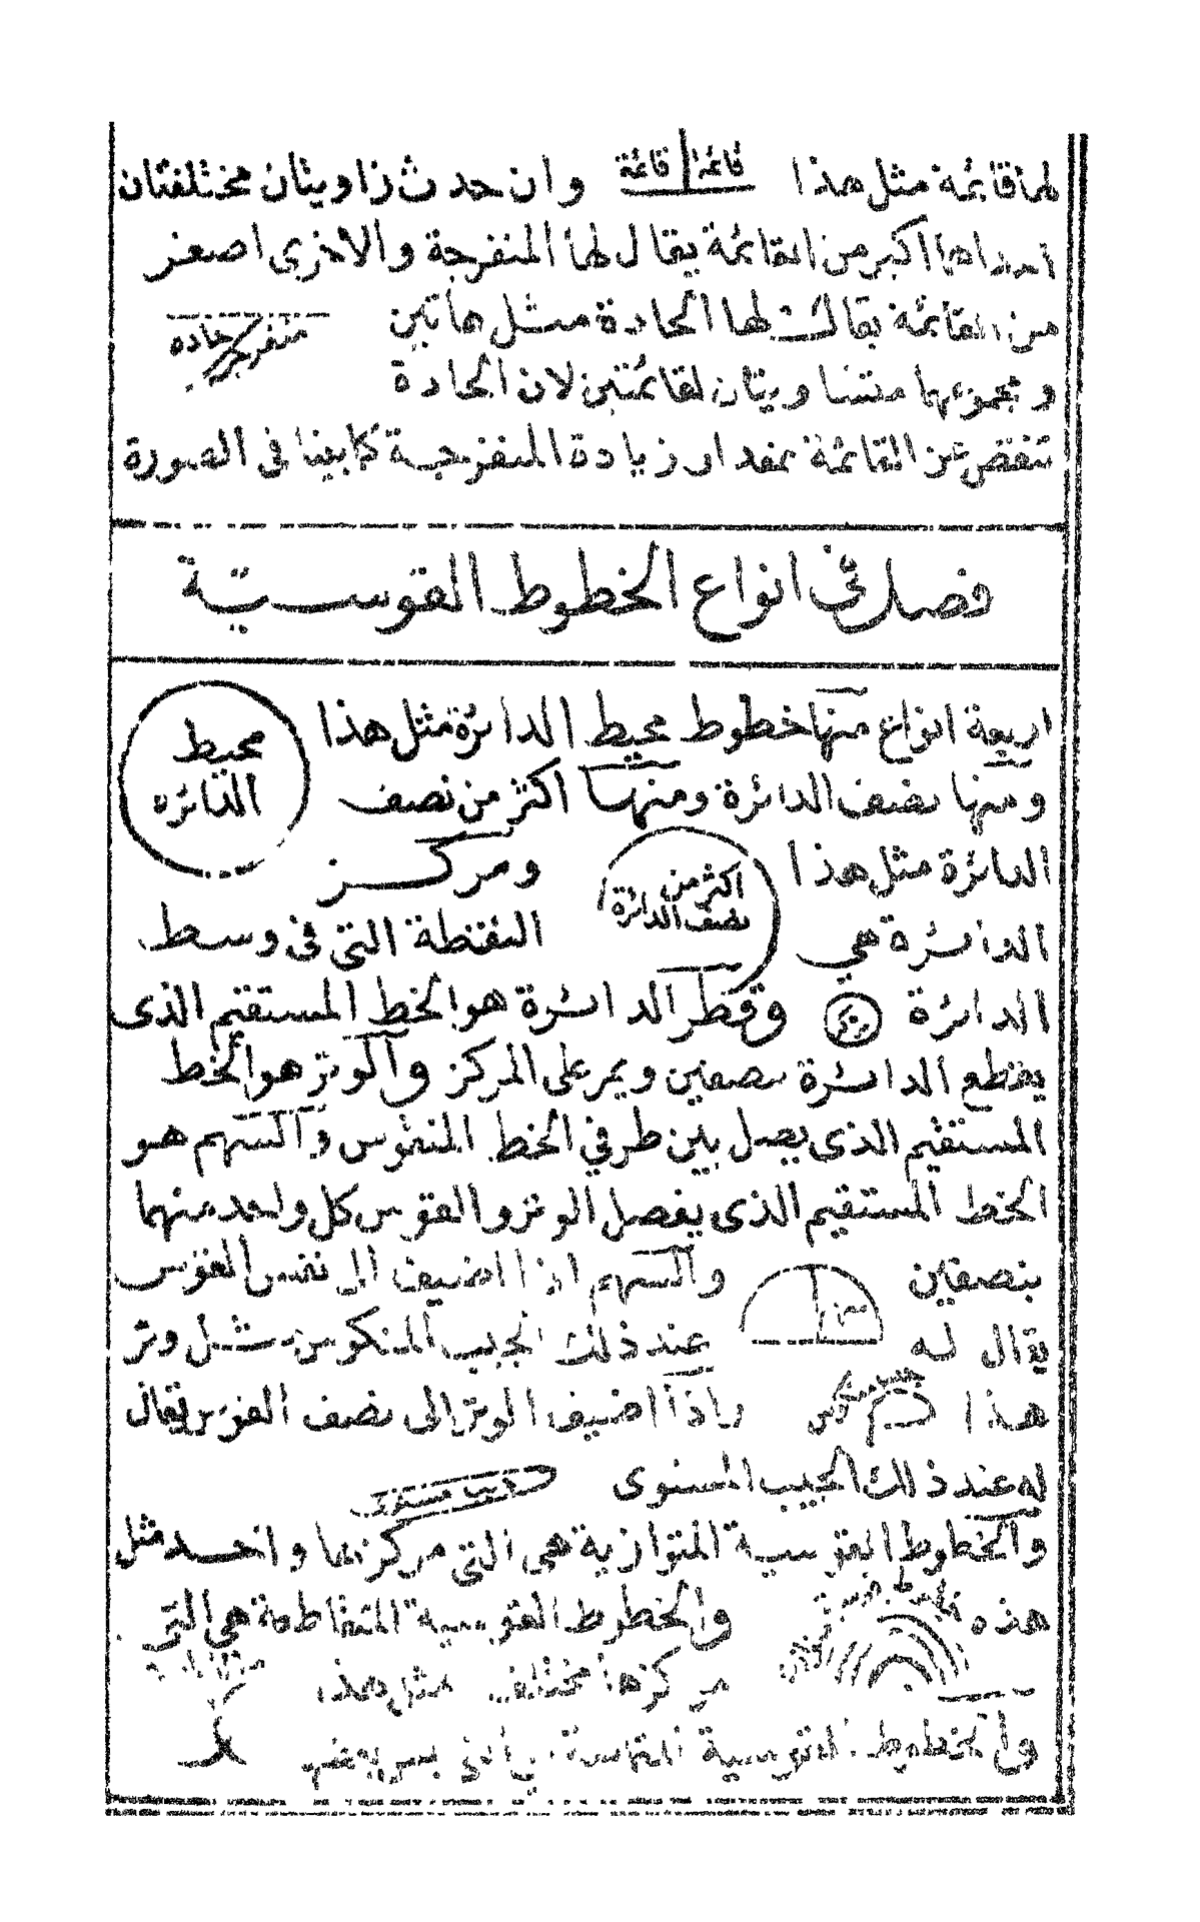 لها قائمة مثل هذا قائمة قائمة وان حدث زاويتان مختلفتان
احداها اكبر من القائمة يقال لها المنفرجة والاخرى اصغر
من القائمة يقال لها الحادة مثل هاتين منفرجة حادة
ومجموعهما متساويتان لقائمتين لان الحادة
تنقص عن القائمة بمقدار زيادة المنفرجة كما بينا فى الصورة
فصل في انواع الخطوط القوسيّة
اربعة انواع منها خطوط محيط الدائرة مثل هذا محيط الدائرة
ومنها نصف الدائرة ومنها اكثر من نصف
الدائرة مثل هذا اكثر من نصف الدائرة ومركز
الدائرة هي النقطة التى فى وسط
الدائرة وقطر الدائرة هو الخط المستقيم الذى
يقطع الدائرة نصفين ويمر على المركز والوتر هو الخط
المستقيم الذى يصل بين طرفي الخط المقوس والسهم هو
الخط المستقيم الذى يفصل الوتر والقوس كل واحد منهما
بنصفين والسهم اذا اضيف الى نفس القوس
يقال له عند ذلك الجيب المنكوس مثل وتر
هذا واذا اضيف الوتر الى نصف القوس يقال
له عند ذلك الجيب المستوى جيب مستوى
والخطوط القوسية المتوازية هى التى مركزها واحد مثل
هذه والخطوط القوسية المتقاطعة هي التى
مركزها مختلف مثل هذا
والخطوط القوسية المتماسة